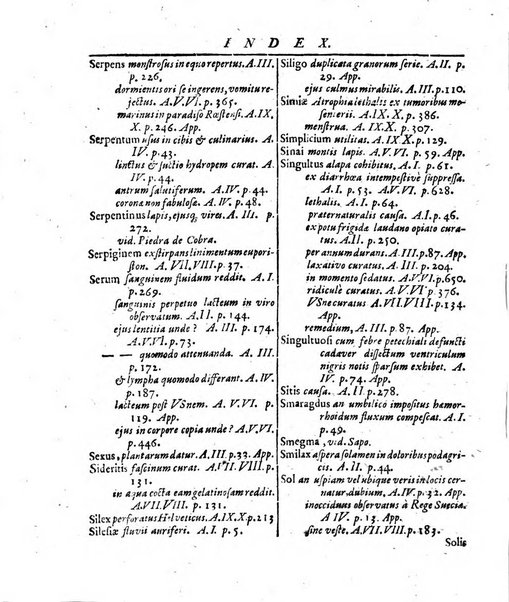 INDEX.
Serpens monstrosus in equo repertus. A. III.
p. 226.
dormientis ori se ingerens, vomitu re-
jectus. A. V. VI. p. 365.
marinus in paradiso Rœstensi. A. IX.
X. p. 246. App.
Serpentum usus in cibis & culinarius. A.
IV. p. 43.
linctus & suctio hydropem curat. A.
IV. p. 44.
antrum salutiferum. A. IV. p. 44.
corona non fabulosa. A. IV. p. 48.
Serpentinus lapis, ejusq; vires. A. III. p.
272.
vid. Piedra de Cobra.
Serpiginem exstirpans linimentum eupori-
ston. A. VII. VIII. p. 37.
Serum sanguinem fluidum reddit. A. I.
p. 269.
sanguinis perpetuo lacteum in viro
observatum. A. II. p. 144.
ejus lentitia unde? A. III. p. 174.
A. V. VI. p. 73.
— — quomodo attenuanda. A. III.
p. 172.
& lympha quomodo differant. A. IV.
p. 187.
lacteum post VSnem. A. V. VI. p.
119. App.
ejus in corpore copia unde? A. V. VI.
p. 446.
Sexus, plantarum datur. A. III. p. 33. App.
Sideritis fascinum curat. A. VII. VIII. p.
131.
in aqua cocta eam gelatinosam reddit.
A. VII. VIII. p. 131.
Silex perforatus Helveticus. A. IX. X. p. 213
Silesiæ fluvii auriferi. A. I. p. 5.
Siligo duplicata granorum serie. A. II. p.
29. App.
ejus culmus mirabilis. A. III. p. 110.
Simiæ Atrophia lethalis ex tumoribus me-
senterii. A. IX. X. p. 386.
menstrua. A. IX. X. p. 307.
Simplicium utilitas. A. IX. X. p. 129.
Sinai montis lapis. A. V. VI. p. 59. App.
Singultus alapa cohibitus. A. I. p. 61.
ex diarrhœa intempestivè suppressa.
A. V. VI. p. 53. A. V. VI. p. 628.
lethalis. A. I. p. 64.
præternaturalis causa. A. I. p. 64.
ex potu frigida laudano opiato curatus.
A. II. p. 250.
per annum durans. A. III. p. 87. App.
laxativo curatus. A. III. p. 204.
in momento sedatus. A. V. VI. p. 650.
ridiculè curatus. A. V. VI. p. 376.
VSne curatus A. VII. VIII. p. 134.
App.
remedium, A. III. p. 87. App.
Singultuosi cum febre petechiali defuncti
cadaver dissectum ventriculum
nigris notis sparsum exhibet. A.
IV. p. 74. App.
Sitis causa. A. II. p. 278.
Smaragdus an umbilico impositus hæmor-
rhoidum fluxum compescat. A. I.
p. 49.
Smegma, vid. Sapo.
Smilax aspera solamen in doloribus podagri-
cis. A. I. p. 44.
Sol an uspiam vel ubique veris in locis cer-
natur dubium, A. IV. p. 32. App.
inocciduus observatus à Rege Sueciæ.
A IV. p. 13. App.
sine veste. A. VII. VIII. p. 183.
Solis